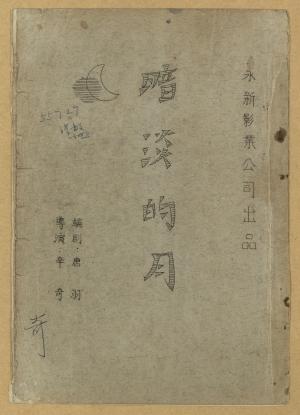 永新影業公司出品
暗淡的月
編劇·唐羽
導演·辛奇
奇